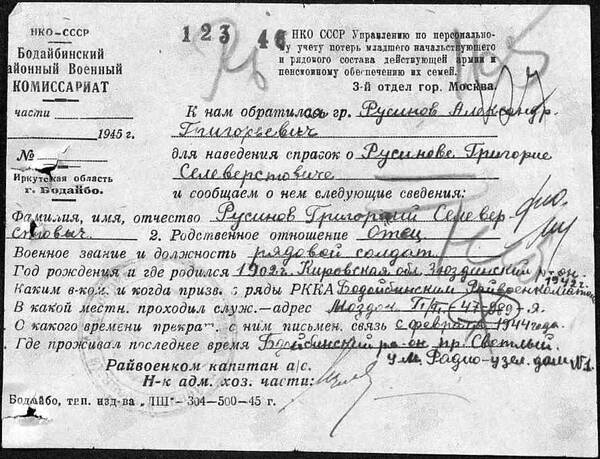 НКО-СССР
Бодайбинский
айонный Военный
КОМИССАРИАТ
части
1945 г.
№
Иркутская область
г. Бодайбо.
123 46
НКО СССР Управлению по персональному
у учету потерь младшего начальствующего
и рядового состава действующей армии и
пенсионному обеспечению их семей.
3-й отдел гор. Москва.
К нам обратился гр. Русинов Александр
Григорьевич
для наведения справок о Русинове Григорие
Селеверстовиче
и сообщаем о нем следующие сведения:
Фамилия, имя, отчество Русинов Григорий Селевер
стович. 2. Родственное отношение Отец
Военное звание и должность рядовой солдат
Год рождения и где родился 1902г. Кировская обл. Зюздинский р-он.
Каким в-ком. и когда призв. в ряды РККА Бодайбинским Райвоенкоматом 1942г.
В какой местн. проходил служ.—адрес Моздок П/П-47-989-я
О какого времени прекра с ним письмен. связь с февраля 1944 года.
Где проживал последнее время Бодайбинский ра-он пр. Светлый
ул. Радио-узел дом №1.
Райвоенком капитан а/с.
Н-к адм. хоз. части:
Бодайбо, тип. изд-ва „ЛШ"-304-500-45 г.